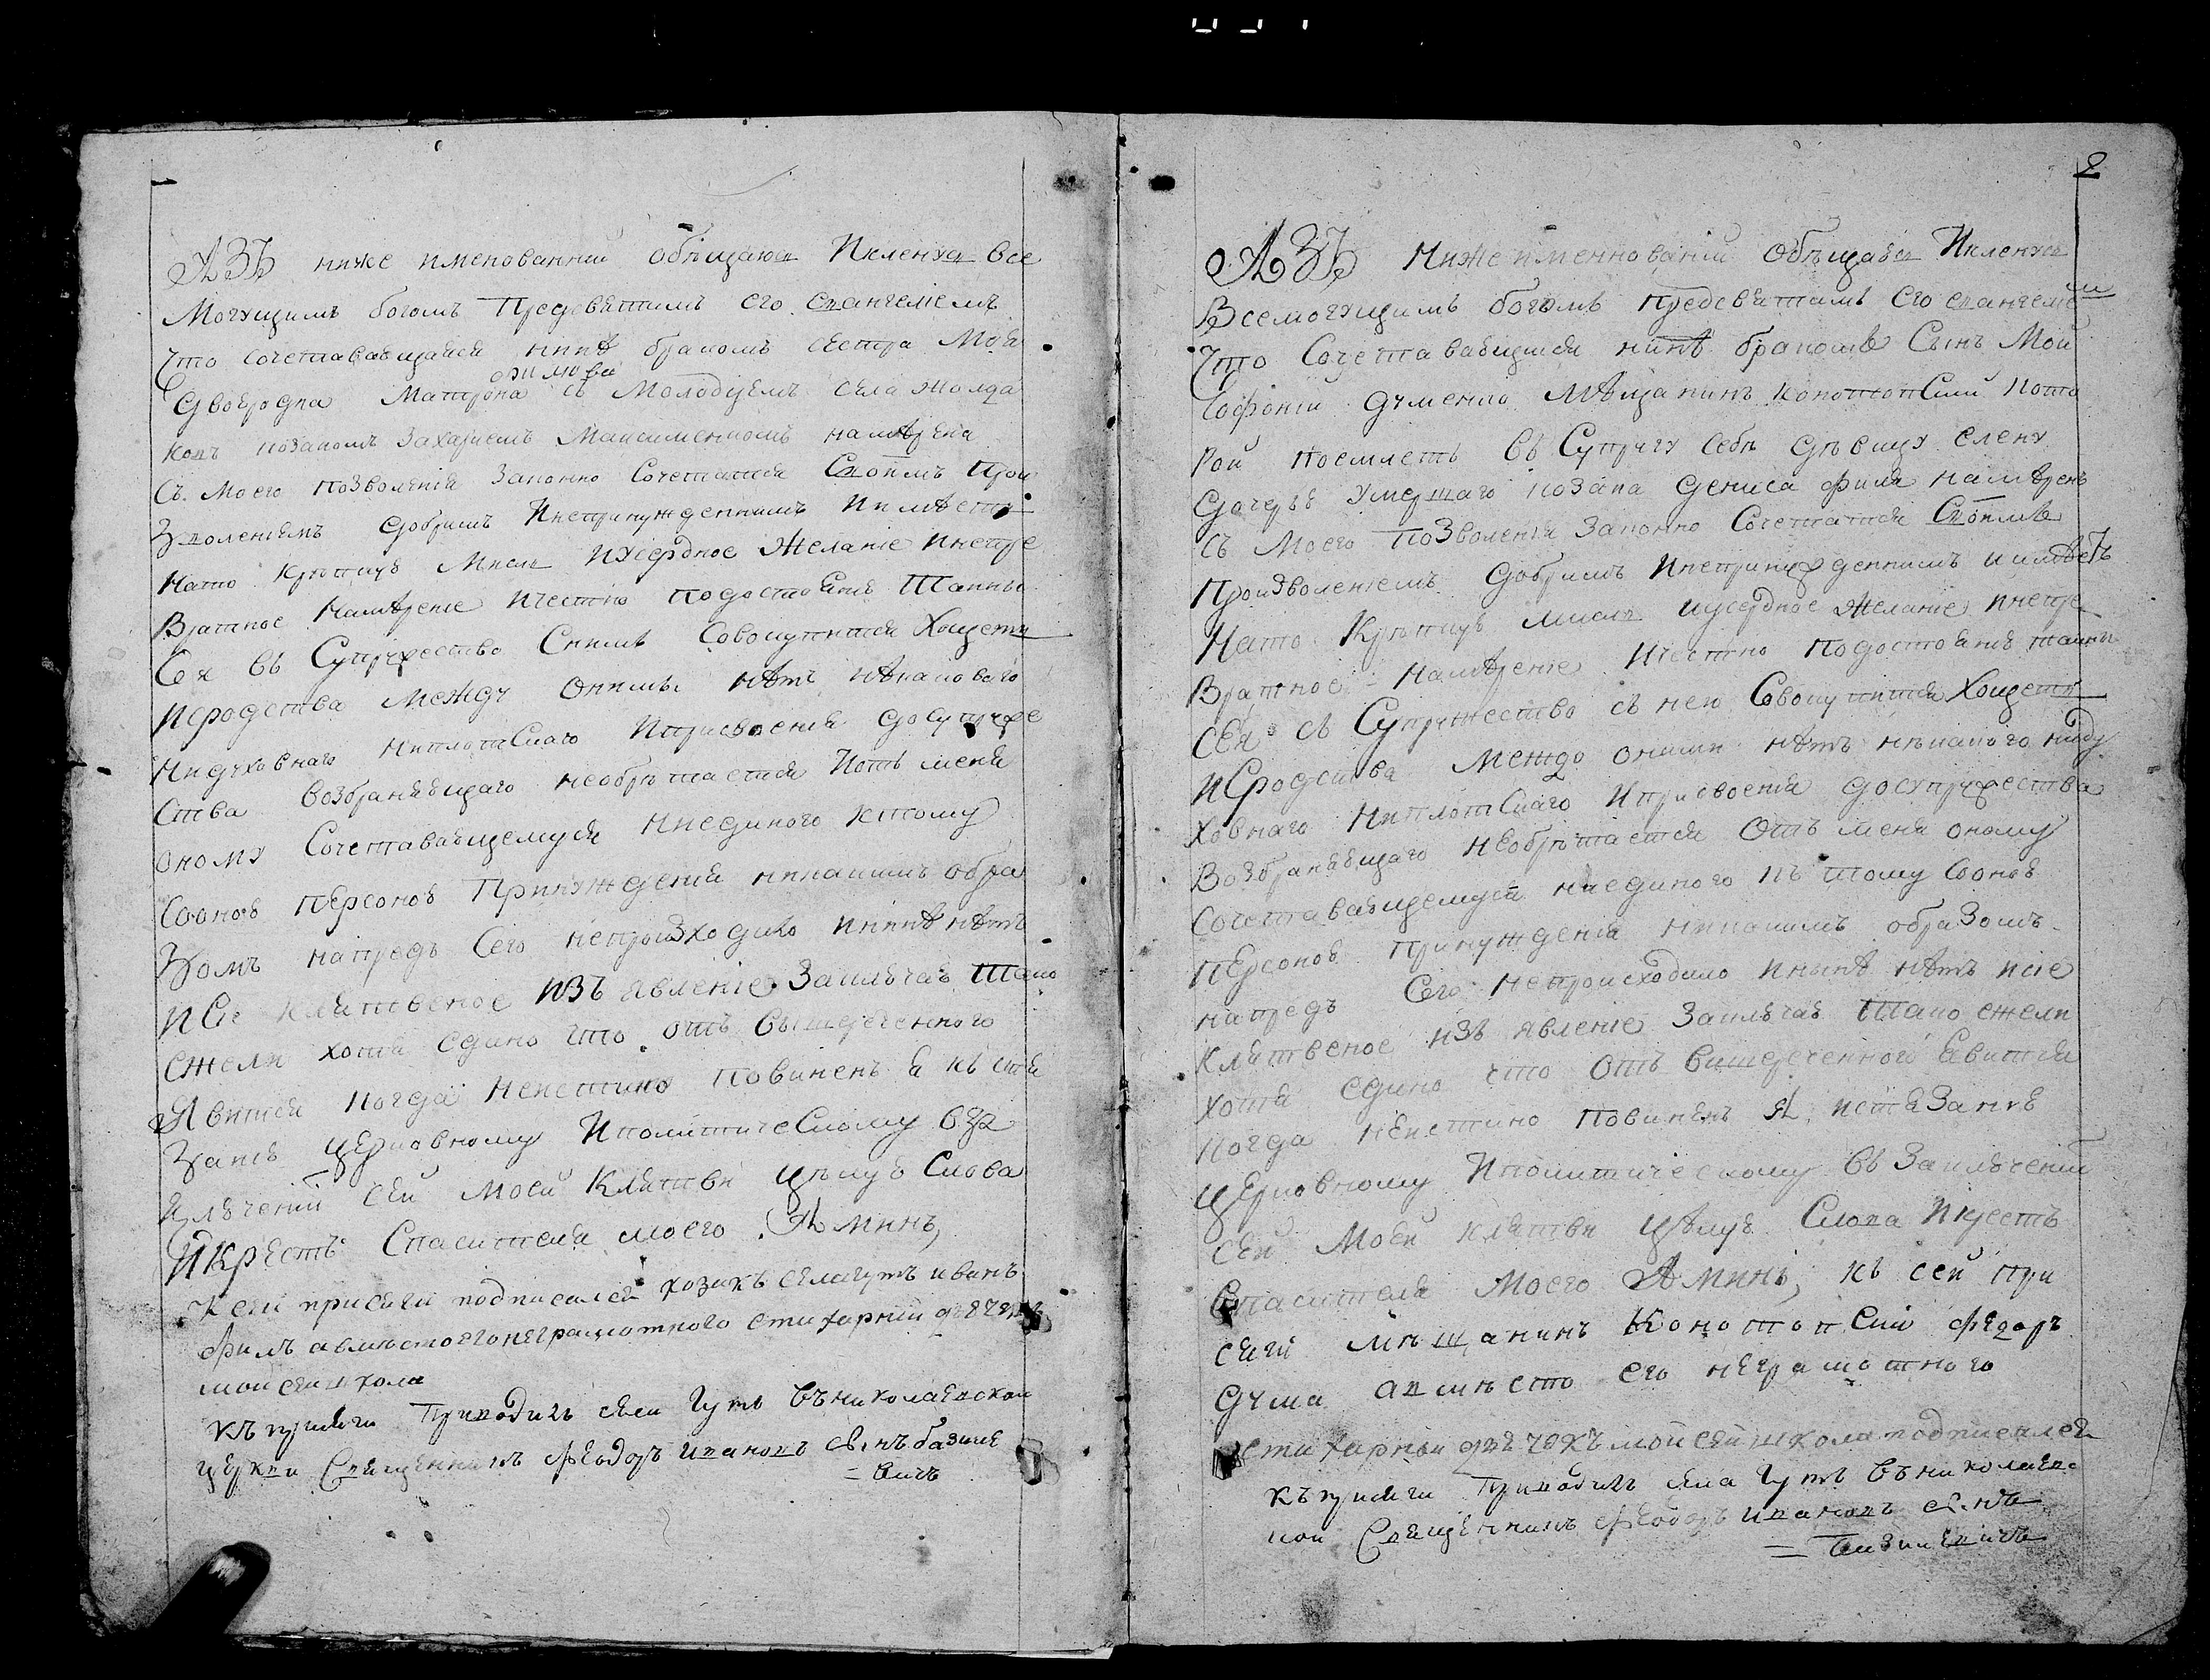 АЗЪ ниже именованнїй обѣщаюся Икленуся Все
Могущимъ богомъ Предсвятимъ его евангелїемъ
Что сочетавающаяся нинѣ бракомъ сестра Моя
Филюва
Двоюродна Матрона съ Молодцемъ села жолда
ковъ козакомъ Захарїемъ Максименкомъ намѣрена
Съ Моего позволенїя Законно Сочетатися Своимъ Прои
Зволенїемъ добримъ Инепринужденнимъ Иимѣетъ
Нато Крѣпкую Мисль Иусердное Желанїе Инепре
Вратное Намѣренїе Ичестно подостоянїю Тайны
Сея въ Супружество Снимъ Совокупитися Хощетъ
ИСродства Между онимы нѣтъ нѣкаковаго
Нидуховнаго Ниплотскаго Иприсвоенїя досупруже
Ства возбраняющаго необрѣтается Иотъ меня
ономх Сочетавающемуся ниединого ктому
Соонов персонов Принуждения никакимъ обра
Зомъ напредъ Сего непроизходило Ининѣ нѣтъ
ИСїе Клятвеное ИЗъ явленїе Заключаю Тако
ежели хотя едино что отъ вышереченного
Явится когда Неистинно Повиненъ я къ истя
Занїю церковному Иполитическому взя
Ключенїй сей моей Клятви цѣлую Слова
Икрестъ Спасителя моего Аминь,
К сей присяги подписался козакъ села гутъ иванъ
филь авмѣсто его неграмотного стихарнїй дьячекъ
мойсей школа
Къ присяги Приводилъ села Гутъ въ николаевской
церкви Священникъ Феодоръ ивановъ с́инъ базике
= вичъ
2
АЗЪ Нижеименнованїй Обѣщаюся Икленуся
Всемогущимъ богомъ Предсвятимъ Его евангелїе м
Что Сочетавающися нинѣ бракомъ Сынъ Мой
Софонїй думенко Мѣщанинъ конотопскїй Кото
рой поемлетъ въ Супругу себѣ дѣвицу елену
Дочерь умершаго козака дениса филя намѣренъ
Съ Моего Позволенїя Законно Сочетатися Своимъ
Произволенїемъ добримъ Инепринужденнимъ иимѣетъ
Нато Крѣпкую мисль иусердное Желанїе инепре
Вратное Намѣренїе Ичестно Подостоянїю тайны
Сея въ Супружество съ нею Совокупитися Хощетъ
ИСродства Междо оними нѣтъ нѣкакого ниду
Ховнаго Ниплотскаго Иприсвоенїя досупружества
Возбраняющаго необрѣтается Отъ меня оному
Сочетавающемуся ниединого къ тому Соонов
Персонов Принужденїя никакимъ образомъ
напредъ Сего непроисходило Инынѣ нѣтъ исїе
Клятвеное изъ явленїе Заключаю Тако ежели
хотя едино что Отъ вишереченного явится
когда неистино Повиненъ Я истязанїю
церковному Иполитическому въ Заключенїй
сей Моей клятви цѣлую Слова Икрестъ
Спасителя Моего Аминь, къ сей при
сяги мѣщанинъ Конотопскїй федоръ
Дума авмѣсто его неграмотного
стихарной дьячокъ мойсей школа подписался
Къ присяги Приводилъ села Гутъ въ николаев
кой Священникъ Феодоръ ивановъ с́инъ
= базикевичъ